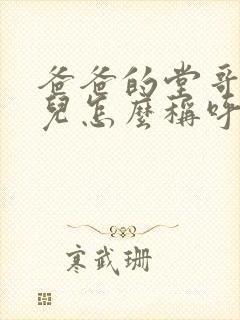 爸爸的堂哥
兒怎麼稱呼
寒武珊